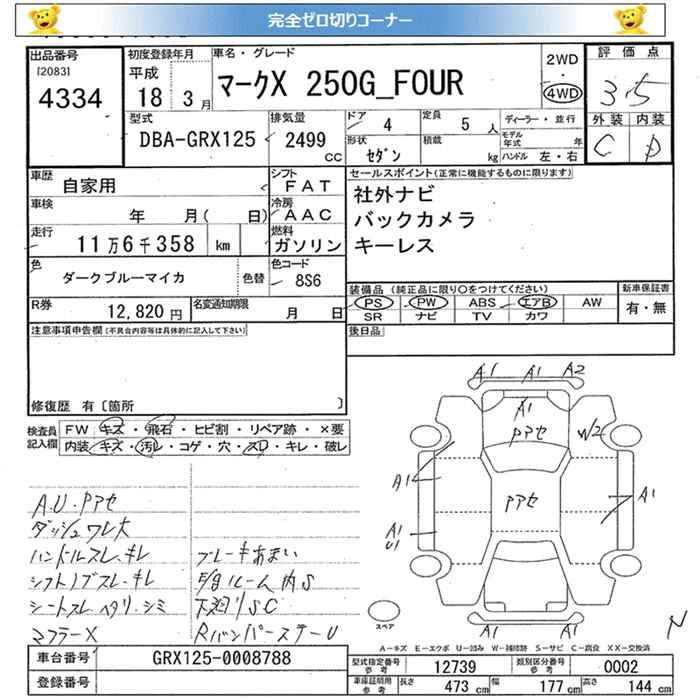 完全ゼロ切りコーナー
出品番号
[2083]
4334
初度登録年月
平成
18 3月
車名・グレード
マークX 250G_FOUR
2WD
・
4WD
評価点
3.5
外装 内装
C D
型式
DBA-GRX125
排気量
2499
cc
ドア 4
定員 5 人
形状
セダン
積載
kg
ディーラー・並行
モデル年式 年
ハンドル 左・右
車歴
自家用
シフト
FAT
車検
年 月( 日)
冷房
AAC
走行
11万6千358 km
燃料
ガソリン
色
ダークブルーマイカ
色替
色コード
8S6
R券
12,820 円
名変通知期限
月 日
セールスポイント(正常に機能するものに限ります)
社外ナビ
バックカメラ
キーレス
装備品 (純正品に限り○をつけてください)
PS PW ABS エアB AW
SR ナビ TV カワ
新車保証書
有・無
後日品
注意事項申告欄(不具合内容等は具体的に記入して下さい)
修復歴 有〔箇所 〕
検査員
記入欄
FW キズ・飛石・ヒビ割・リペア跡・×要
内装 キズ・汚レ・コゲ・穴・スレ・キレ・破レ
A.U.Pアセ
ダッシュワレ大
ハンドルスレ、キレ
シフトノブスレ、キレ
シートスレ ヘタリ、シミ
マフラーX
ブレーキあまい
下廻りSC
RバンパーステーU
A1 A1 A2
A1
Pアセ
W2
Pアセ
A1
A1
A1
U1
A1 A1
スペア
N
A-キズ E-エクボ U-凹み W-補修跡 S-サビ C-腐食 XX-交換済
車台番号
GRX125-0008788
登録番号
型式指定番号
参考
12739
類別区分番号
参考
0002
車庫証明用
参考
長さ 473 cm 幅 177 cm 高さ 144 cm